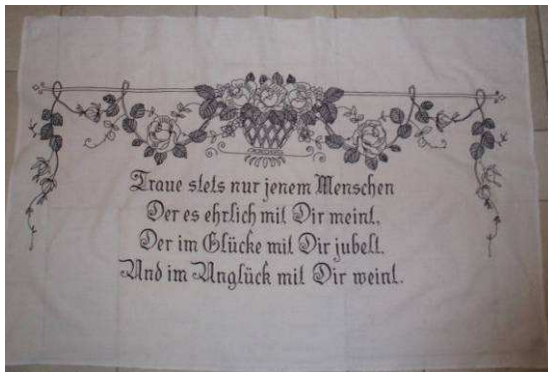 Traue stets nur jenem Menschen
Der es ehrlich mit Dir meint,
Der im Glücke mit Dir jubelt.
Und im Unglück mit Dir weint.